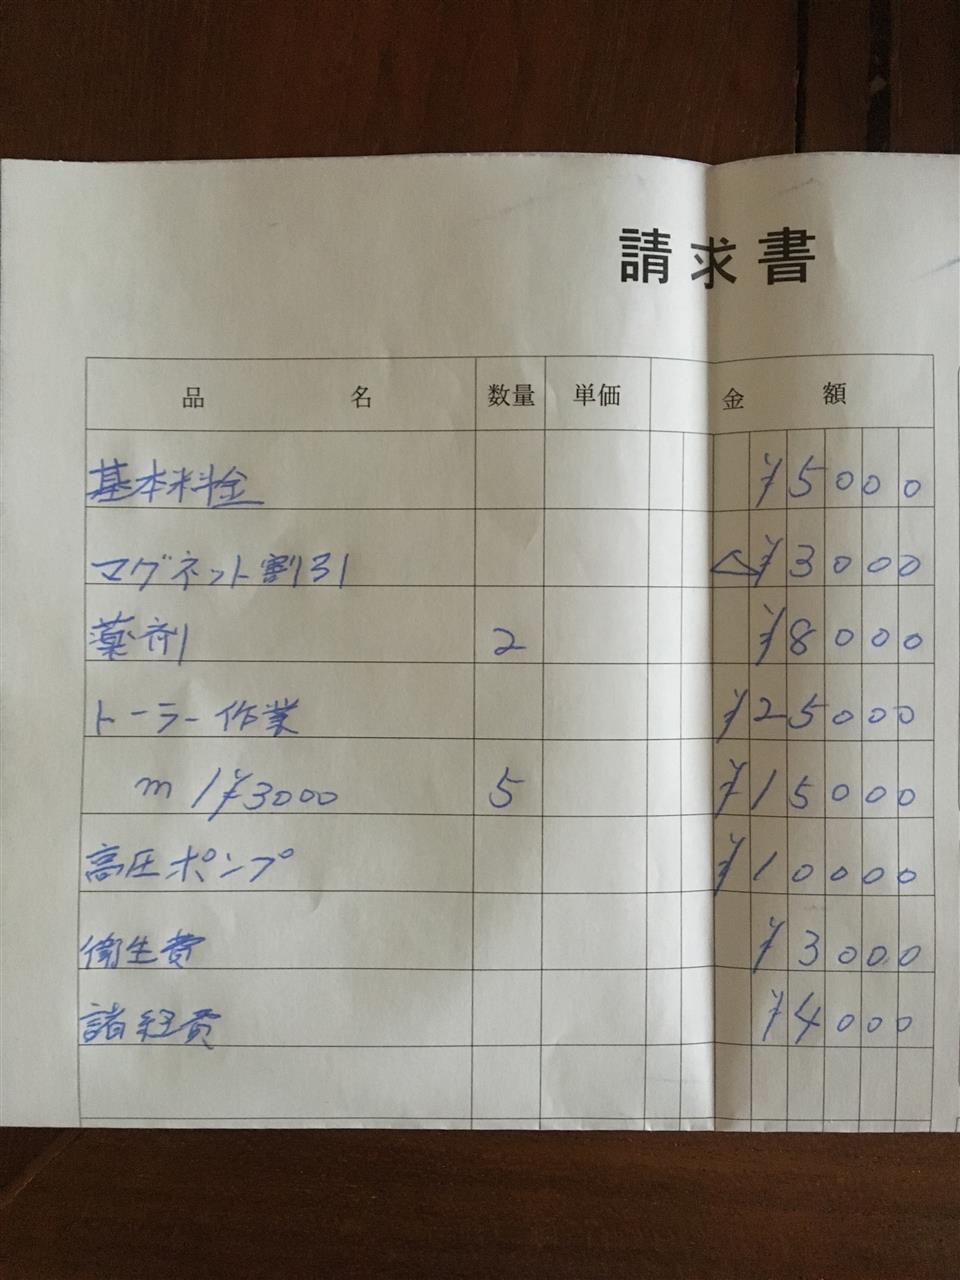 請求書
品名 数量 単価 金額
基本料金 ¥5000
マグネット割引 △¥3000
薬剤 2 ¥8000
トーラー作業 ¥25000
m/¥3000 5 ¥15000
高圧ポンプ ¥10000
衛生費 ¥3000
諸経費 ¥4000